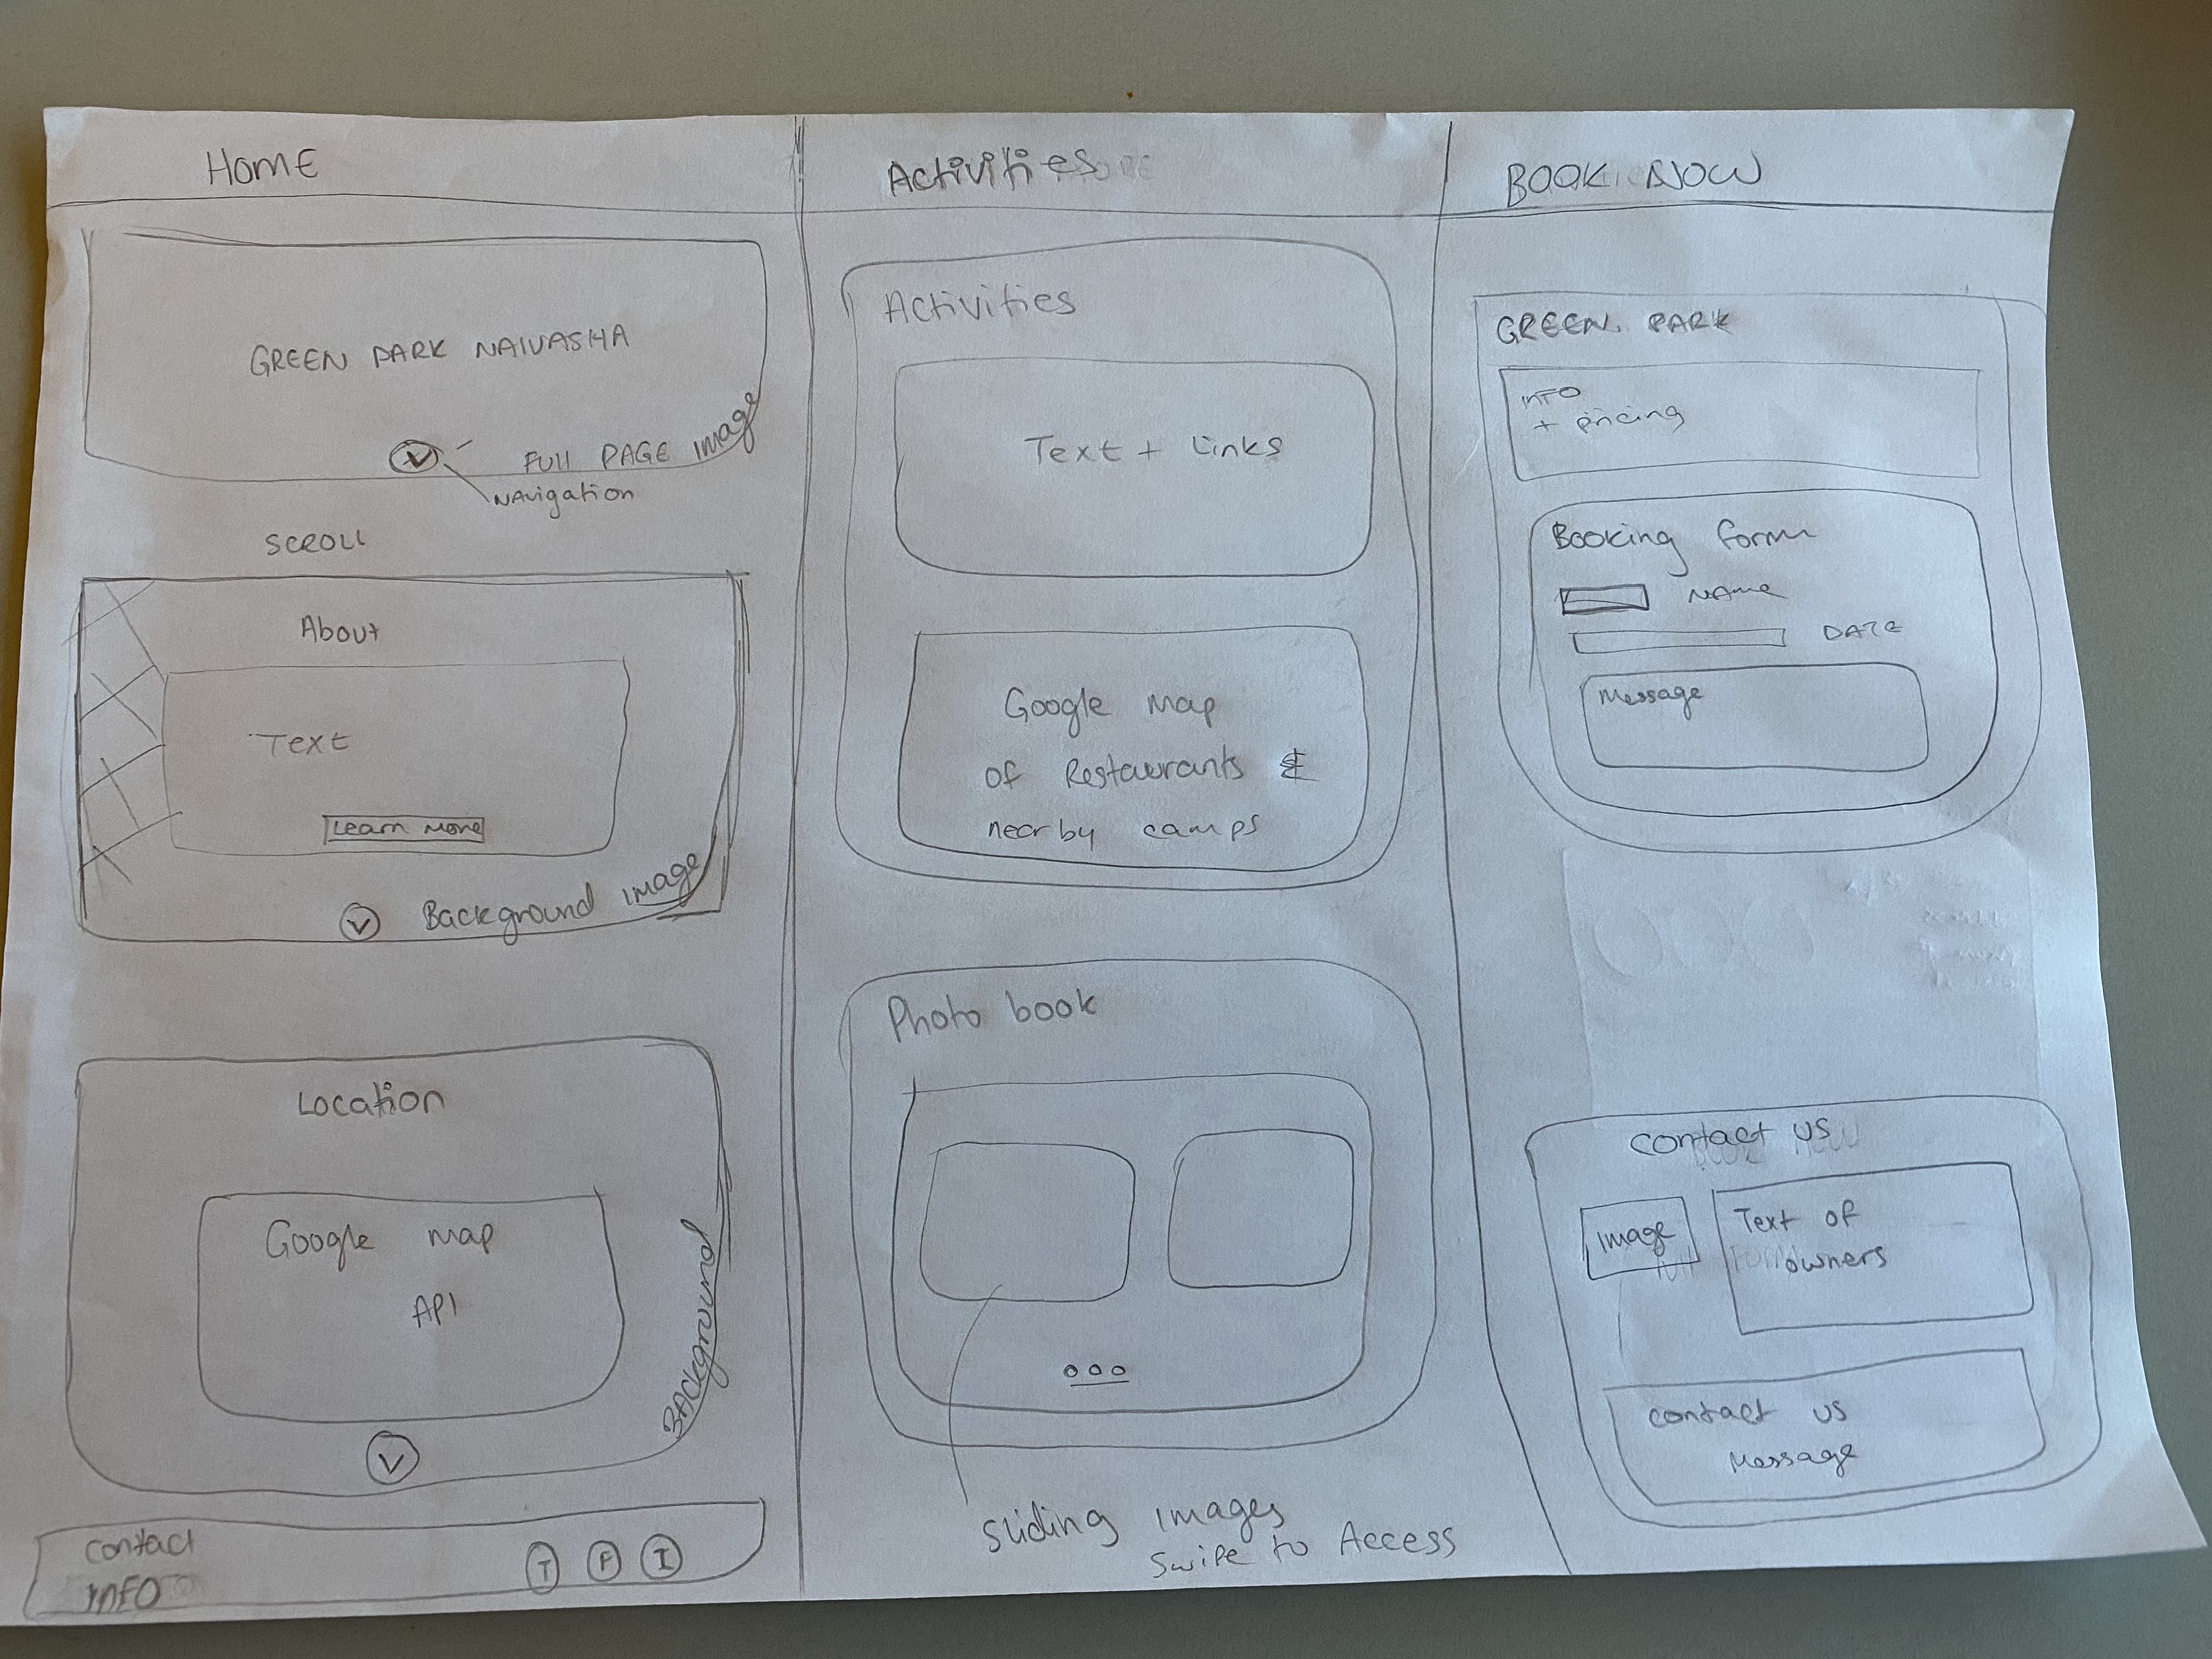 HOME
GREEN PARK NAIVASHA
FULL PAGE IMAGE
NAVIGATION
SCROLL
About
Text
Learn More
V Background IMAGE
Location
Google Map
API
BACKGROUND
V
contact
INFO
T F I
Activities
Activities
Text + Links
Google Map
of Restaurants &
nearby camps
Photo book
Sliding Images
Swipe to Access
BOOK NOW
GREEN PARK
INFO
+ pricing
Booking form
NAME
DATE
Message
contact us
Image
Text of
owners
contact us
Message